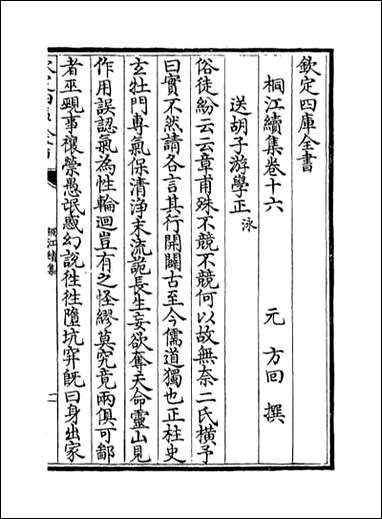 欽定四庫全書
桐江續集卷十六
元 方回 撰
送胡子游學正 泳
俗徒紛云云章甫殊不競不競何以故無奈二氏橫予
曰實不然請各言其行開闢古至今儒道獨也正柱史
玄牡門專氣保清淨末流詭長生妄欲奪天命靈山見
作用誤認氣為性輪迴豈有之怪繆莫究竟兩俱可鄙
者巫覡事禳禜愚氓惑幻說徃徃墮坑穽旣曰身出家
桐江續集
一